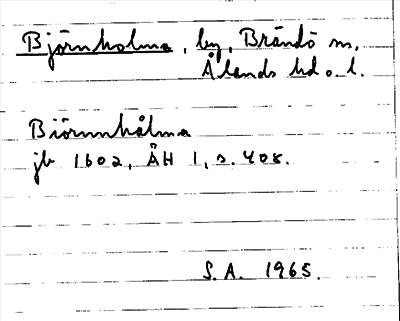 Björnholma, by, Brändö sn,
Ålands hd o. l.
Biörnnhålma
jb 1602, ÄH 1, s. 408.
S.A. 1965.